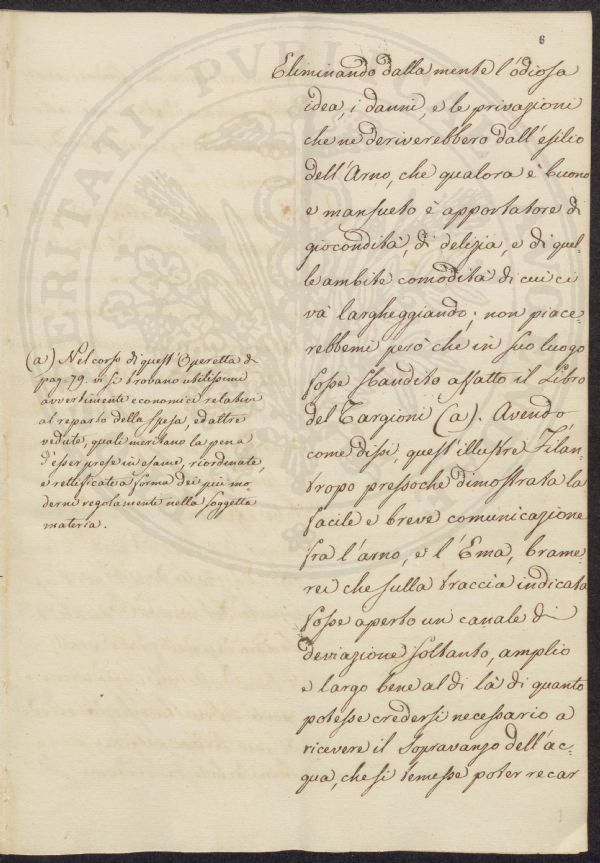 6
Eliminando dalla mente l'odiosa
idea, i danni, e le privazioni
che ne deriverebbero dall'esilio
dell'Arno, che qualora è buono
e mansueto è apportatore di
giocondità, di delizia, e di quel-
le ambite comodità di cui ci
và largheggiando; non piace-
rebbemi però che in suo luogo
fosse sbandito affatto il Libro
del Targioni (a). Avendo
come dissi, quest'illustre Filan-
tropo pressochè dimostrata la
facile e breve comunicazione
fra l'arno, e l'Ema, brame-
rei che sulla traccia indicata
fosse aperto un canale di
deviazione soltanto, amplio
e largo bene al di là di quanto
potesse credersi necessario a
ricevere il sopravanzo dell'ac-
qua, che si temesse poter recar
(a) Nel corso di quest'Operetta di
pag. 79. vi si trovano utilissimi
avvertimenti economici relativi
al reparto della spesa, ed altre
vedute, quali meritano la pena
d'esser prese in esame, riordinate,
e rettificate a forma dei più mo-
derni regolamenti nella soggetta
materia.
VERITATI PVBLICAE